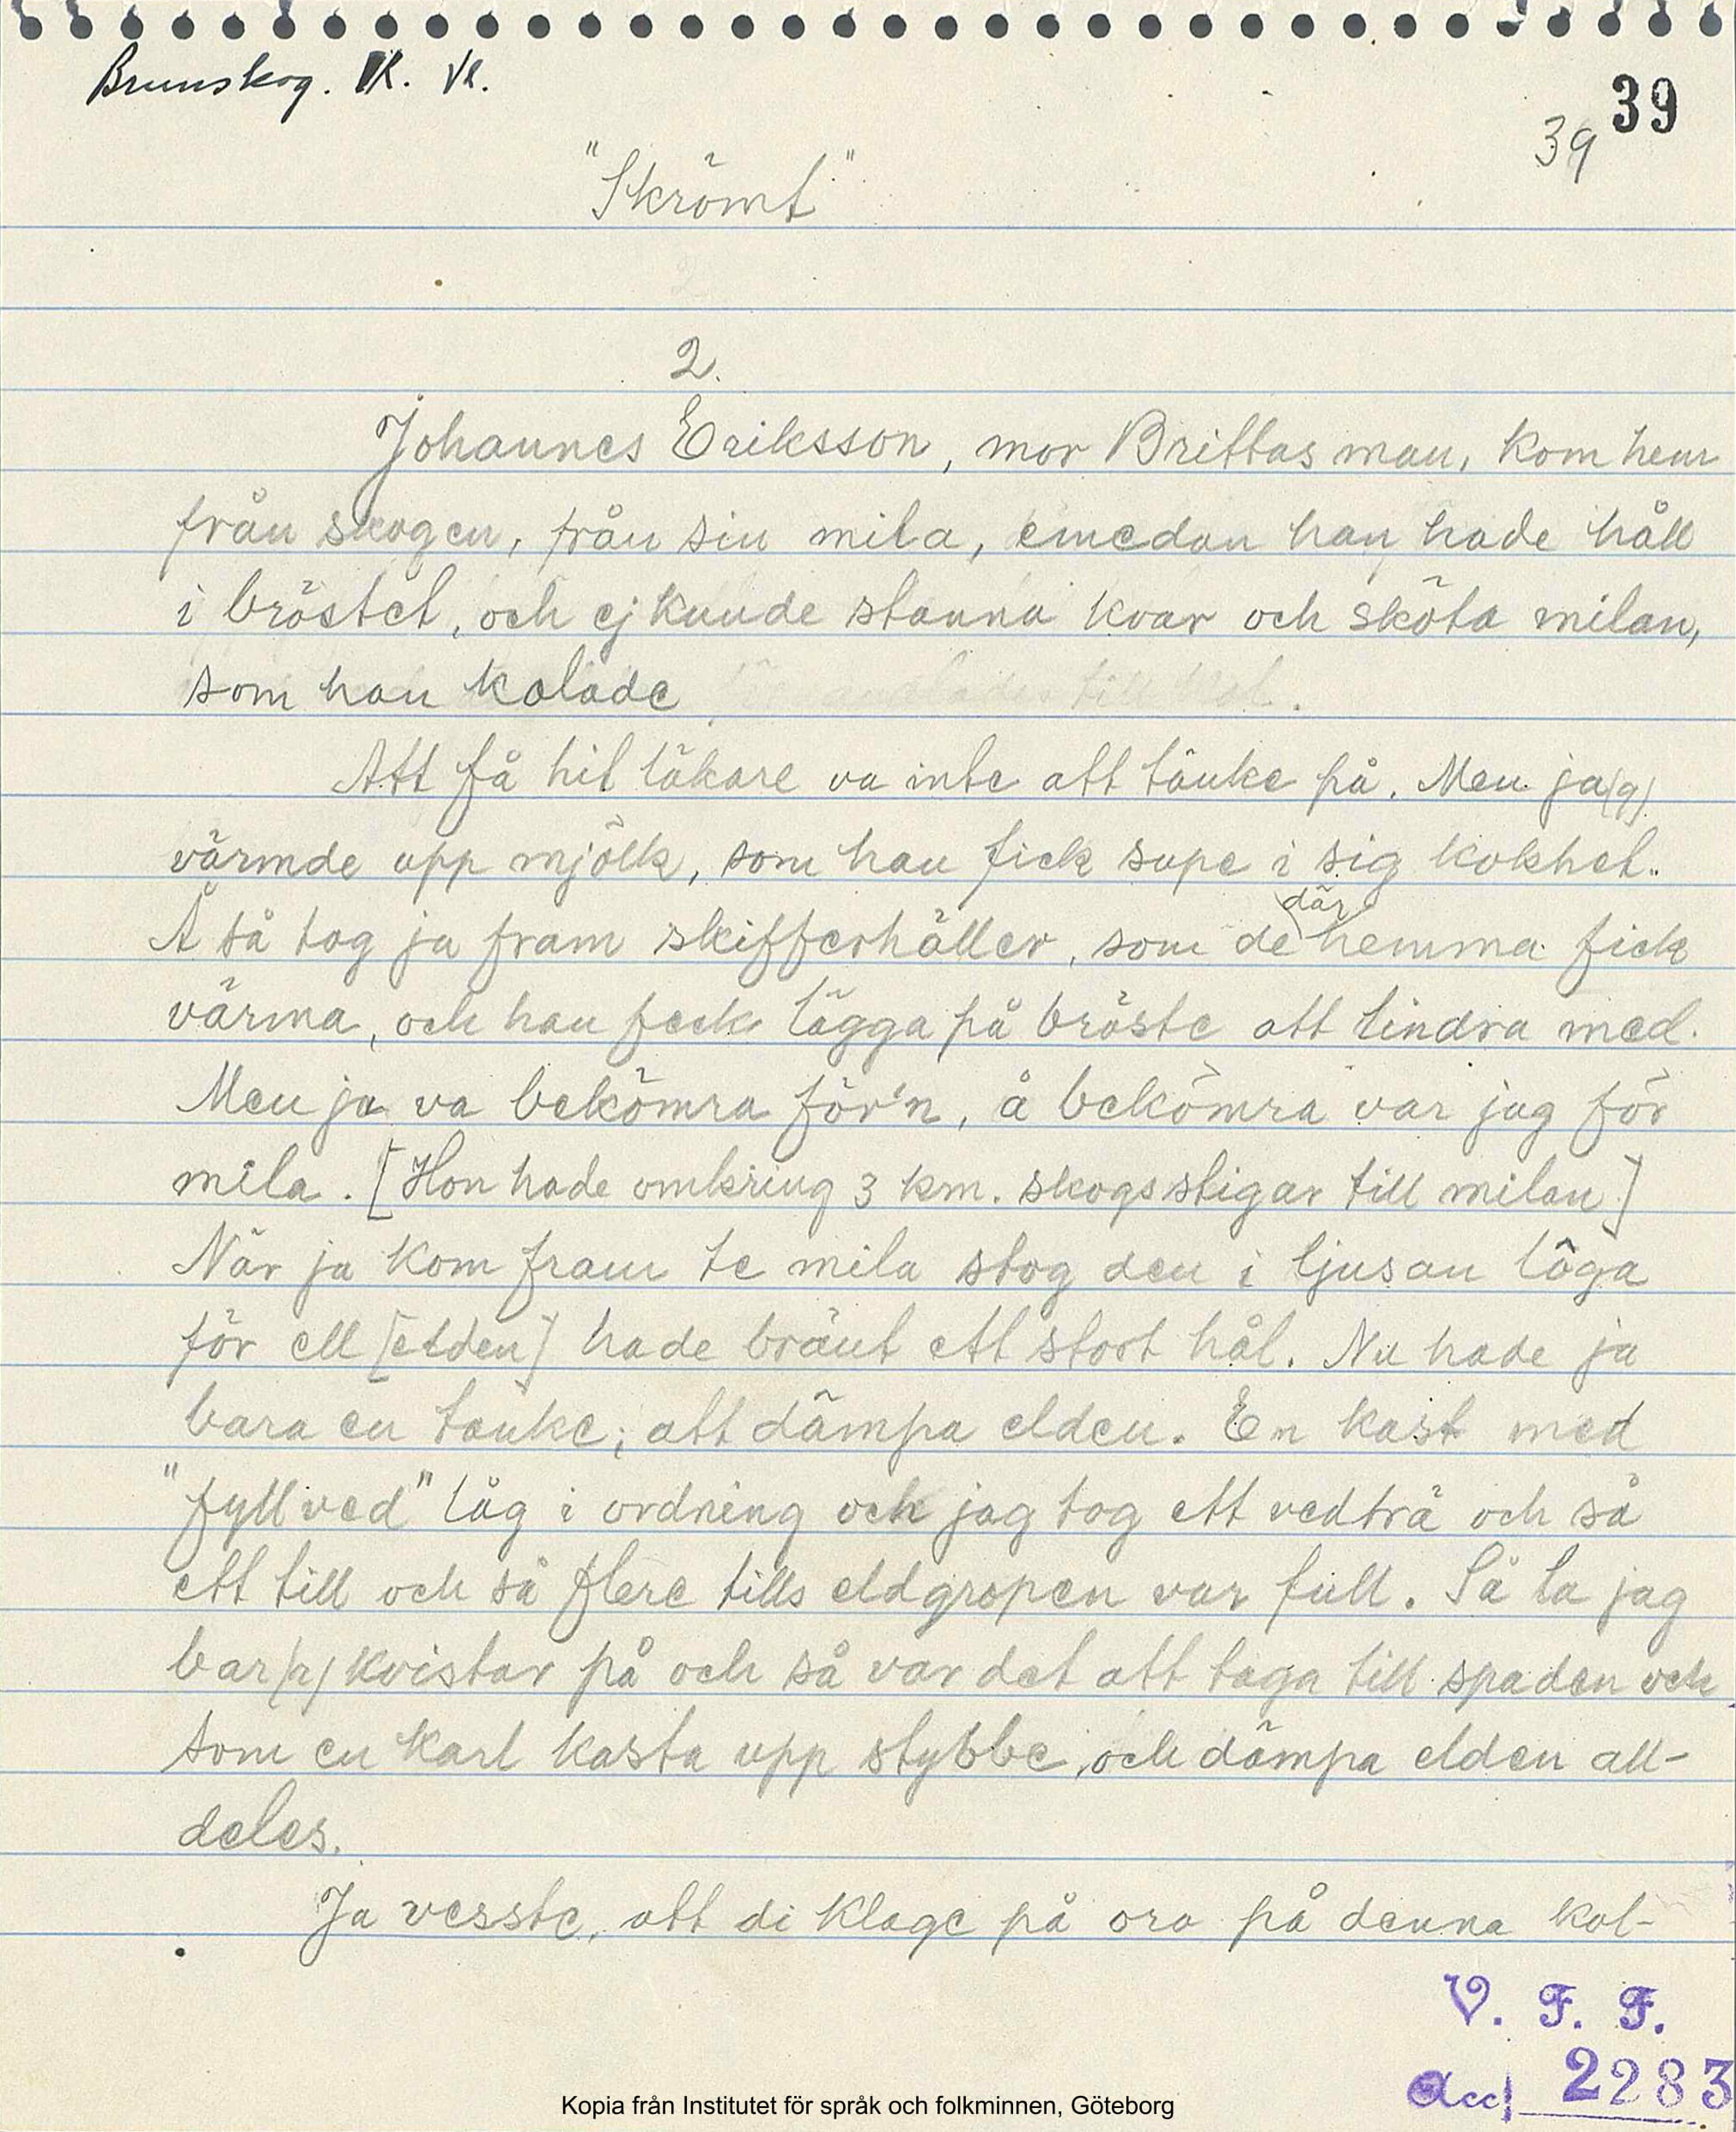 Brunskog. K. Vl.
39
39
"Skrömt"
2.
Johannes Eriksson, mor Brittas man, kom hem
från skogen, från sin mila, emedan han hade håll
i bröstet, och ej kunde stanna kvar och sköta milan,
som han kolade
Att få hit läkare va inte att tänke på. Men ja(g)
värmde upp mjölk, som han fick supe i sig kokhet.
Å så tog ja fram skifferhäller, som de där hemma fick
värma, och han feck lägga på bröste att lindra med.
Men ja va bekömra för'n, å bekömra var jag för
mila. [Hon hade omkring 3 km. skogsstigar till milan]
När ja kom fram te mila stog den i ljusan lôga
för ell [elden] hade bränt ett stort hål. Nu hade ja
bara en tanke; att dämpa elden. En kast med
"fyllved" låg i ordning och jag tog ett vedträ och så
ett till och så flere tills eldgropen var full. Så la jag
bar(r)kvistar på och så var det att taga till spaden och
som en karl kasta upp stybbe, och dämpa elden all-
deles.
Ja vesste, att di klage på oro på denna kol-
V. F. F.
Acc 2283
Kopia från Institutet för språk och folkminnen, Göteborg